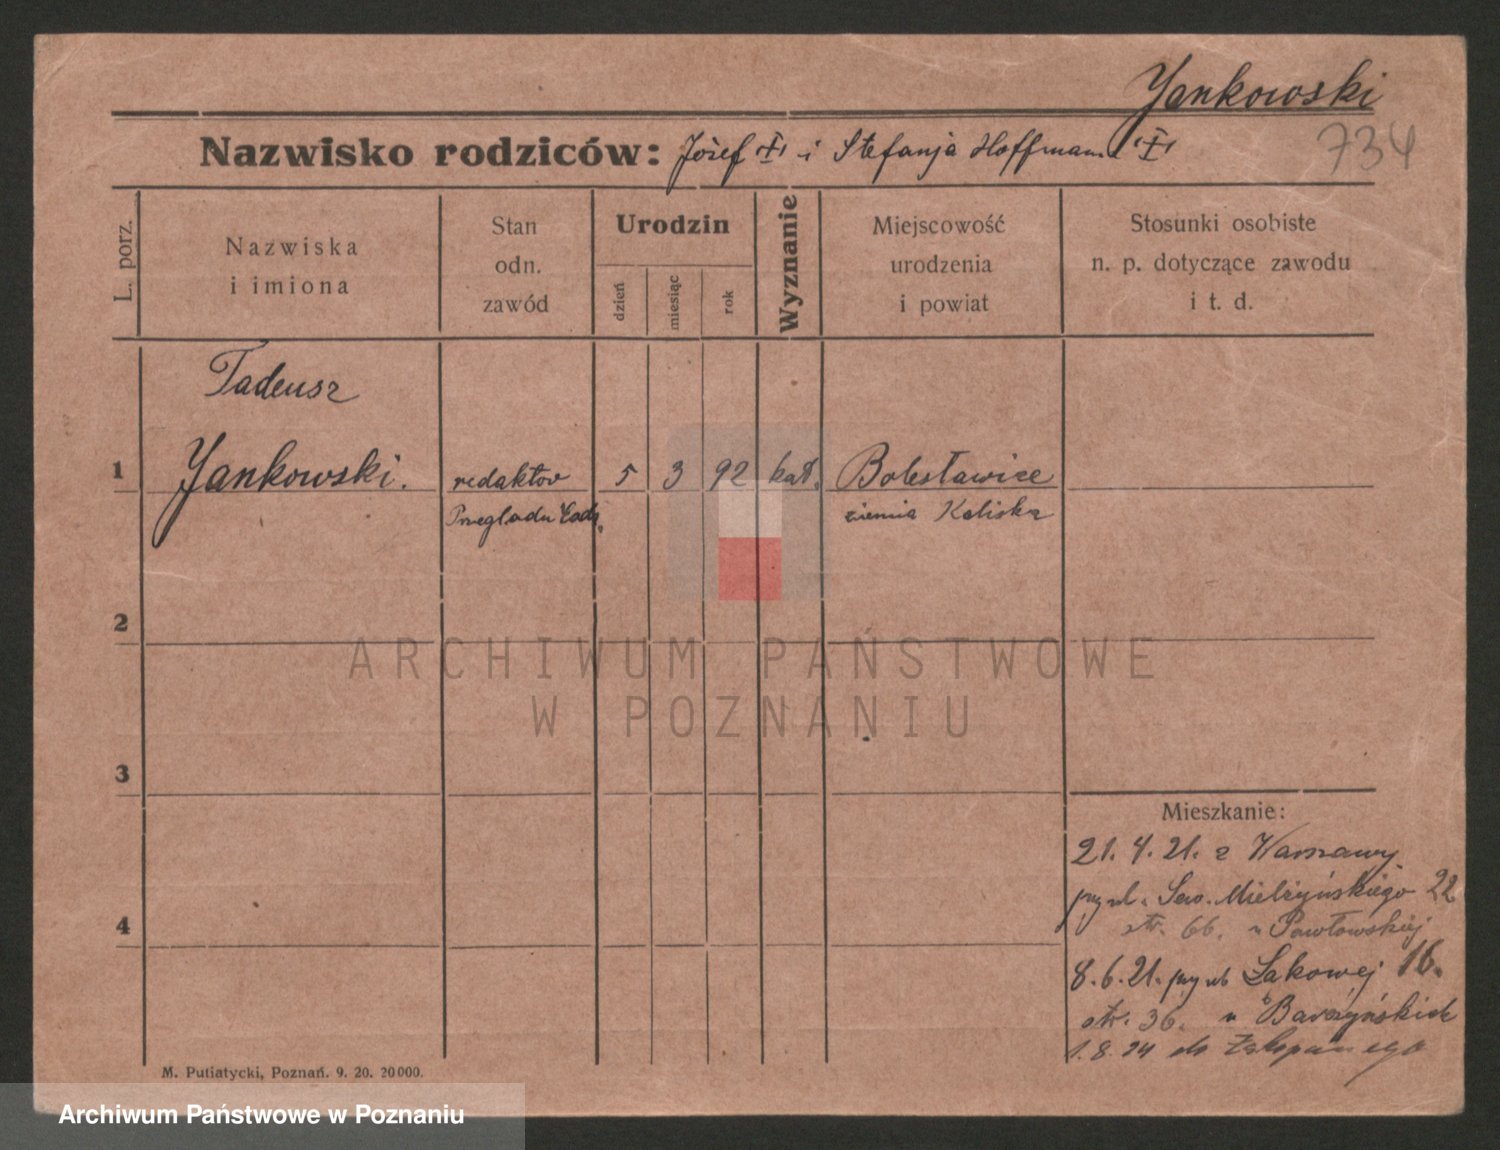 Yankowski
734
Nazwisko rodziców: Józef i Stefanja Hoffmann
L. porz.
Nazwiska
i imiona
Stan
odn.
zawód
Urodzin
dzień
miesiąc
rok
Wyznanie
Miejscowość
urodzenia
i powiat
Stosunki osobiste
n. p. dotyczące zawodu
i t. d.
Tadeusz
1 Yankowski. redaktor 5 3 92 kat. Bolesławice
Przeglądu ziemia Kaliska
2
ARCHIWUM PAŃSTWOWE
W POZNANIU
3
4
Mieszkanie:
21. 4. 21. z Warszawy
przy ul. Sew. Mielżyńskiego 22
str. 66. u Pawłowskiej
8. 6. 21. przy ul Łąkowej 16.
str. 36. u Barzyńskich
1. 8. 24 do Zakopanego
M. Putiatycki, Poznań. 9. 20. 20000.
Archiwum Państwowe w Poznaniu